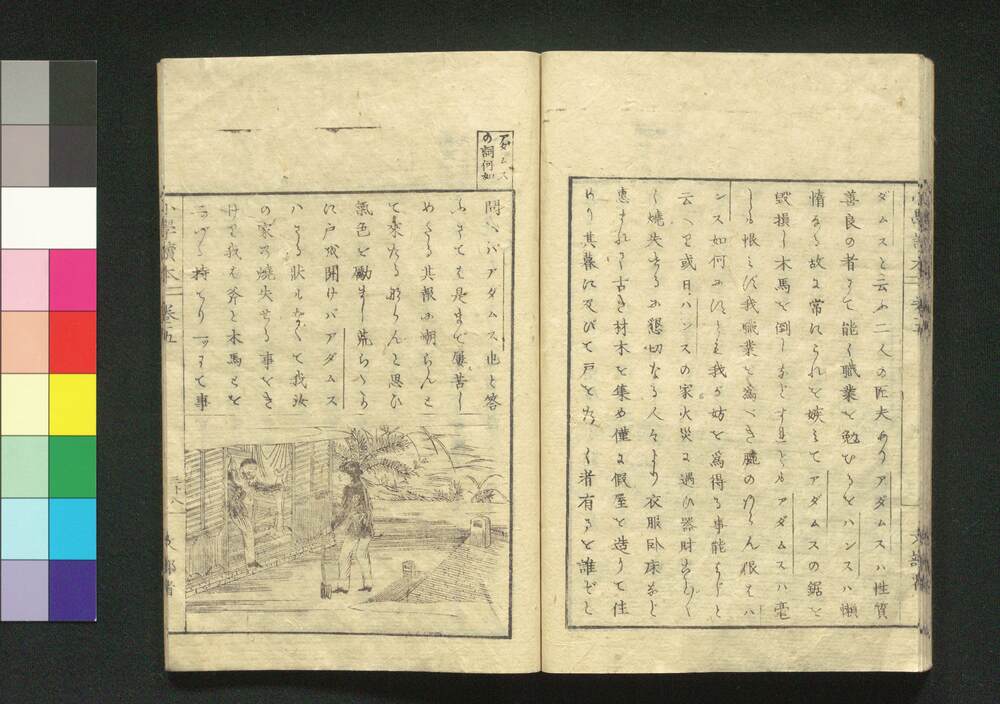 ダムスと云ふ二人の匠夫あり アダムスハ性質
善良の者にて能く職業を勉むるとハンスハ懶
惰なる故に常にこれを嫉みてアダムスの鋸を
毀損し木馬を倒しなどすれどもアダムスハ毫
しも恨みず我職業を為べき腕のあらん限ハハ
ンス如何にすとも我が妨を為得る事能はじと
云へり或日ハンスの家火災に遇ひ器財尽く
燒失せるに懇切なる人々より衣服臥床など
惠まれて古き材木を集め僅に假屋を造りて住
めり其暮に及びて戸をたゝく者有ると誰ぞと
アダムス
の詞何如
問へバアダムス也と答
ふさては是まで屢苦し
めたる其報に嘲らんと
て來たるならんと思ひ
氣色を勵まし荒らゝら
に戸を開けバアダムス
ハさる狀もなくて我汝
の家の燒失せる事をき
けり我も斧と木馬とを
持たり
小學讀本 卷五
三十八
文部省